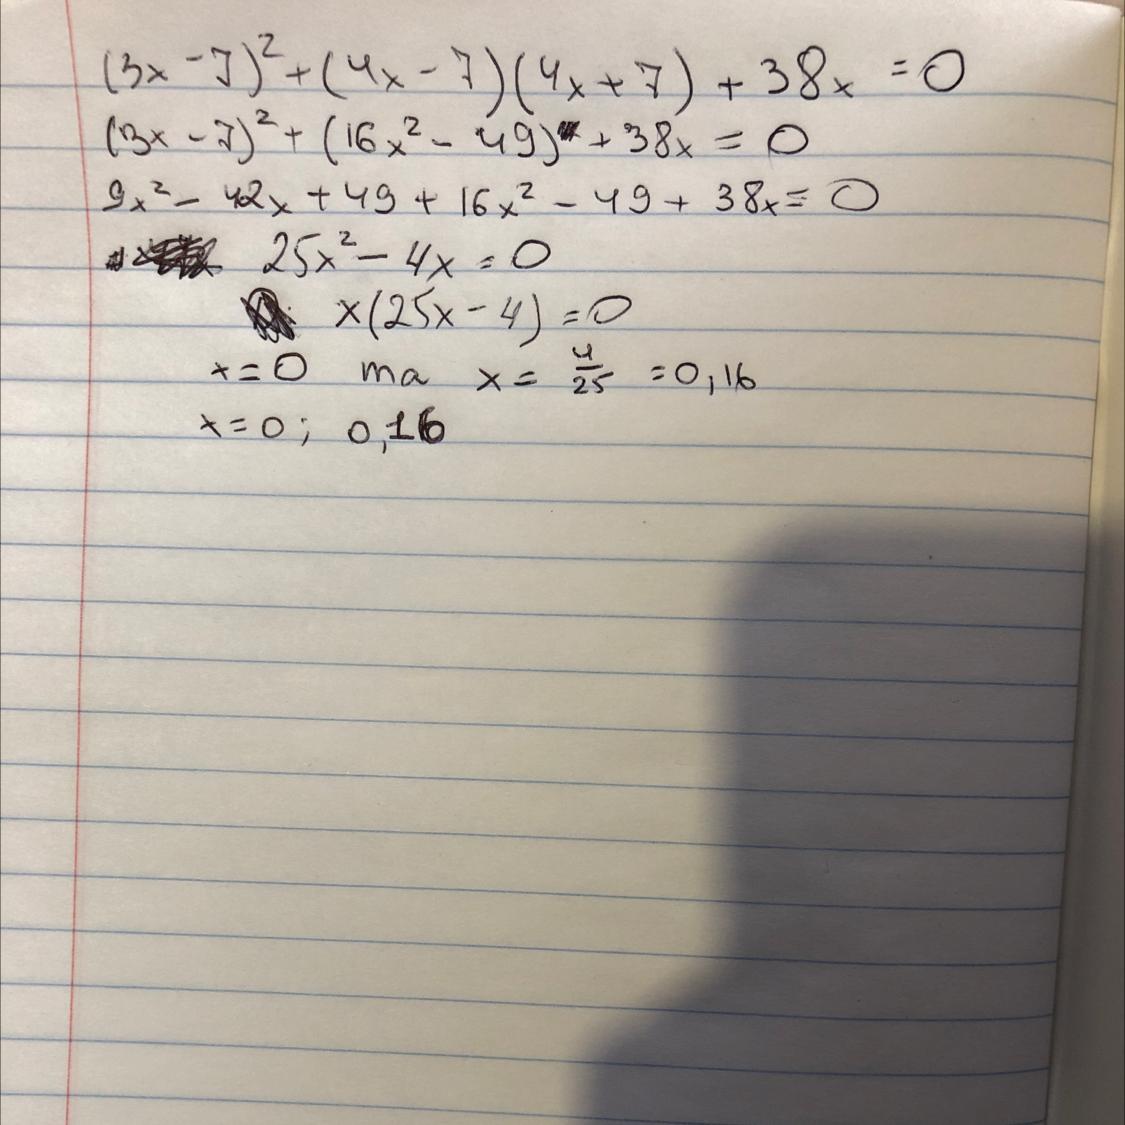 (3x - 7)² + (4x - 7)(4x + 7) + 38x = 0
(3x - 7)² + (16x² - 49) + 38x = 0
9x² - 42x + 49 + 16x² - 49 + 38x = 0
25x² - 4x = 0
x(25x - 4) = 0
x = 0 та x = 4/25 = 0,16
x = 0; 0,16